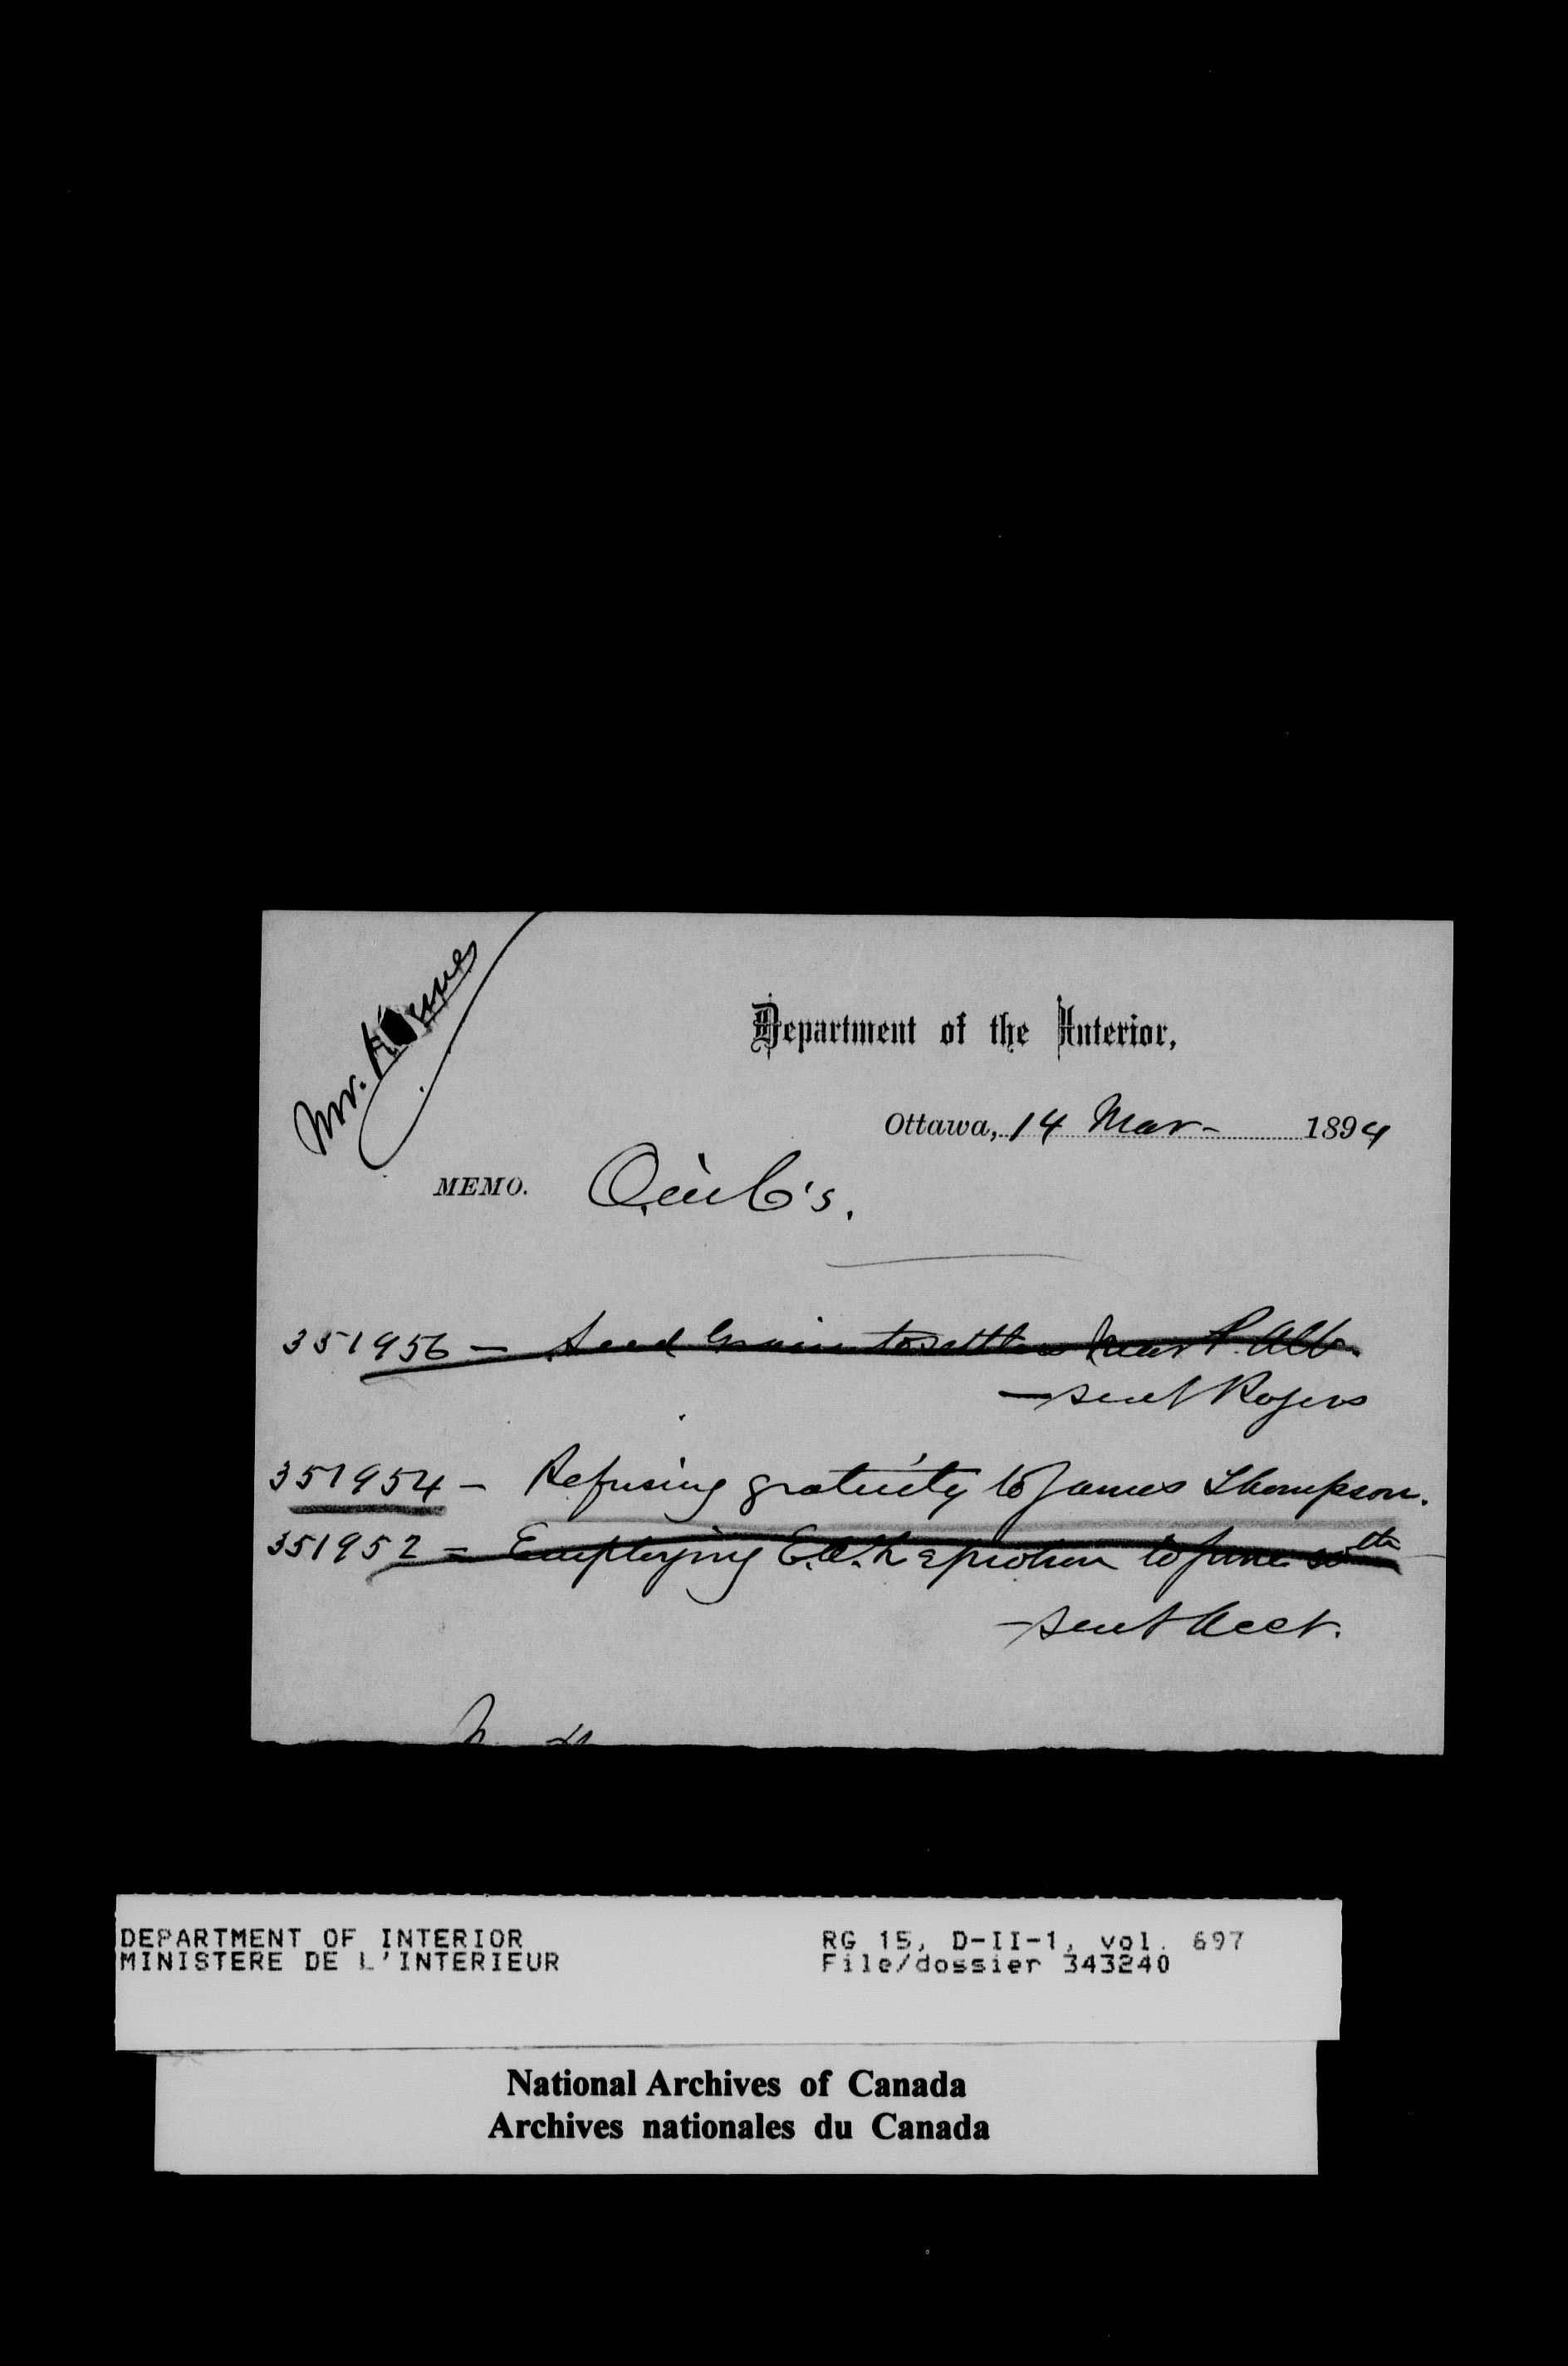 Mr.
Department of the Interior,
Ottawa, 14 Mar- 1894
MEMO. O. in C's.
351956 - Seed Grain to settlers near P. Alb.
- sent Rogers
351954 - Refusing gratuity to James Thompson.
351952 - Employing to June 30th
- sent Acct.
DEPARTMENT OF INTERIOR
MINISTERE DE L'INTERIEUR
RG 15, D-II-1, vol. 697
File/dossier 343240
National Archives of Canada
Archives nationales du Canada